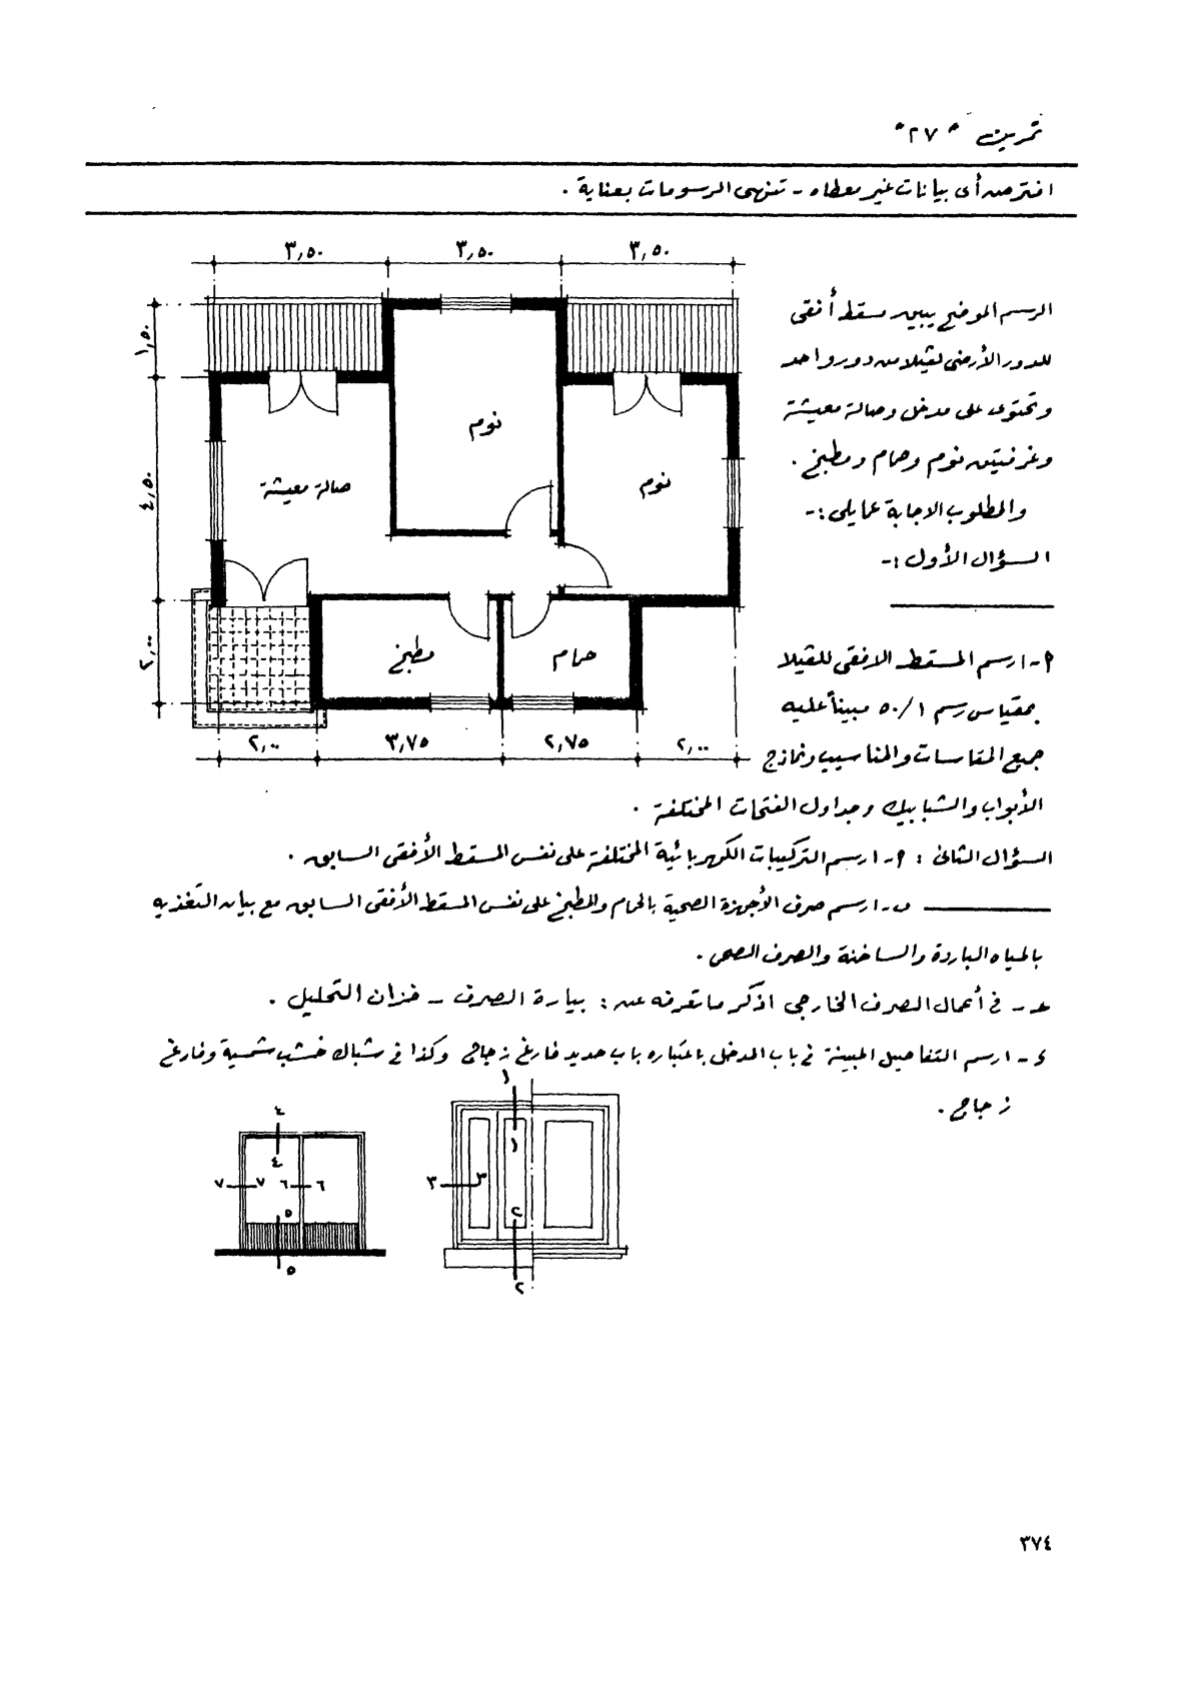 تمرين "٢٧"
افترض أى بيانات غير معطاه - تنهى الرسومات بعناية .
٣,٥٠ ٣,٥٠ ٣,٥٠
الرسم الموضح يبين مسقط أفقى
للدور الأرضى لفيلا من دور واحد
وتحتوى على مدخل وصالة معيشة
وغرفتين نوم وحمام ومطبخ .
والمطلوب الاجابة عمايلى :-
السؤال الأول :-
١,٥٠
٤,٥٠
٢,٠٠
نوم
صالة معيشة
نوم
مطبخ
حمام
٢,٠٠ ٣,٧٥ ٢,٧٥ ٢,٠٠
٢- ارسم المسقط الافقى للفيلا
بمقياس رسم ١/٥٠ مبيناً عليه
جميع المقاسات والمناسيب ونماذج
الأبواب والشبابيك وجداول الفتحات المختلفة .
السؤال الثانى : ٢- ارسم التركيبات الكهربائية المختلفة على نفس المسقط الأفقى السابق .
ب- ارسم صرف الأجهزة الصحية بالحمام والمطبخ على نفس المسقط الأفقى السابق مع بيان التغذيه
بالمياه الباردة والساخنة والصرف الصحى .
ﺟ - فى أعمال الصرف الخارجى اذكر ما تعرفه عن : بيارة الصرف - خزان التحليل .
د - ارسم التفاصيل المبينة فى باب المدخل باعتباره باب حديد فارغ زجاجى وكذا فى شباك خشب شمسية وفارغ
زجاج .
١
١
٣ ٣
٢
٢
٤
٤
٧ ٧ ٦ ٦
٥
٥
٣٧٤